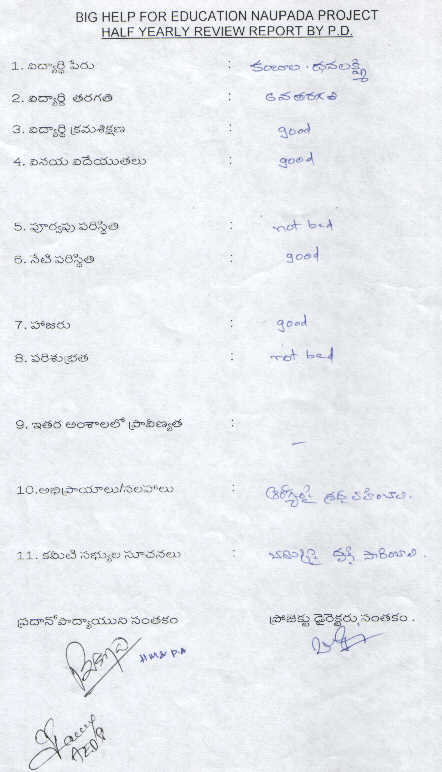 BIG HELP FOR EDUCATION NAUPADA PROJECT
HALF YEARLY REVIEW REPORT BY P.D.
1. విద్యార్థి పేరు : కంబాల . ధనలక్ష్మి
2. విద్యార్థి తరగతి : 6వ తరగతి
3. విద్యార్థి క్రమశిక్షణ : good
4. వినయ విదేయుతలు : good
5. పూర్వపు పరిస్థితి : not bed
6. నేటి పరిస్థితి : good
7. హాజరు : good
8. పరిశుభ్రత : not bed
9. ఇతర అంశాలలో ప్రావీణ్యత : —
10.అభిప్రాయాలు/సలహాలు : ఆరోగ్యంపై శ్రద్ధ వహించాలి.
11. కమిటి సభ్యుల సూచనలు : దృష్టి సారించాలి.
ప్రదానోపాద్యాయుని సంతకం ప్రోజెక్టు డైరెక్టరు,సంతకం .